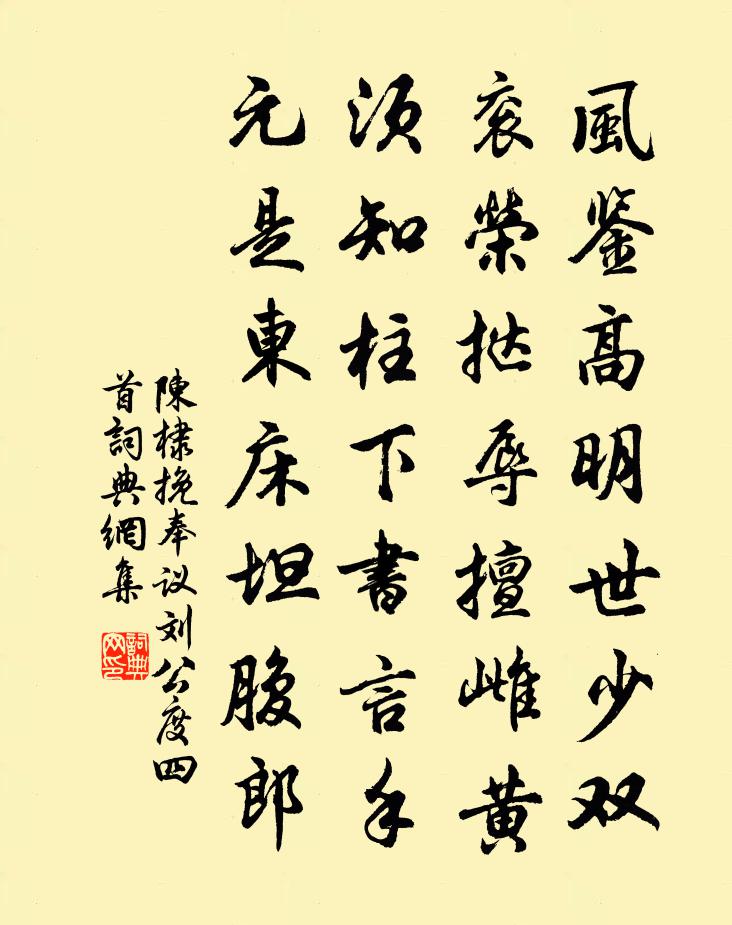 風鉴髙明世少双
衮榮挞辱擅雌黄
须知柱下書言手
元是東床坦腹郎
陳棣挽奉议刘公度四
首詞典網集
詞典
网印